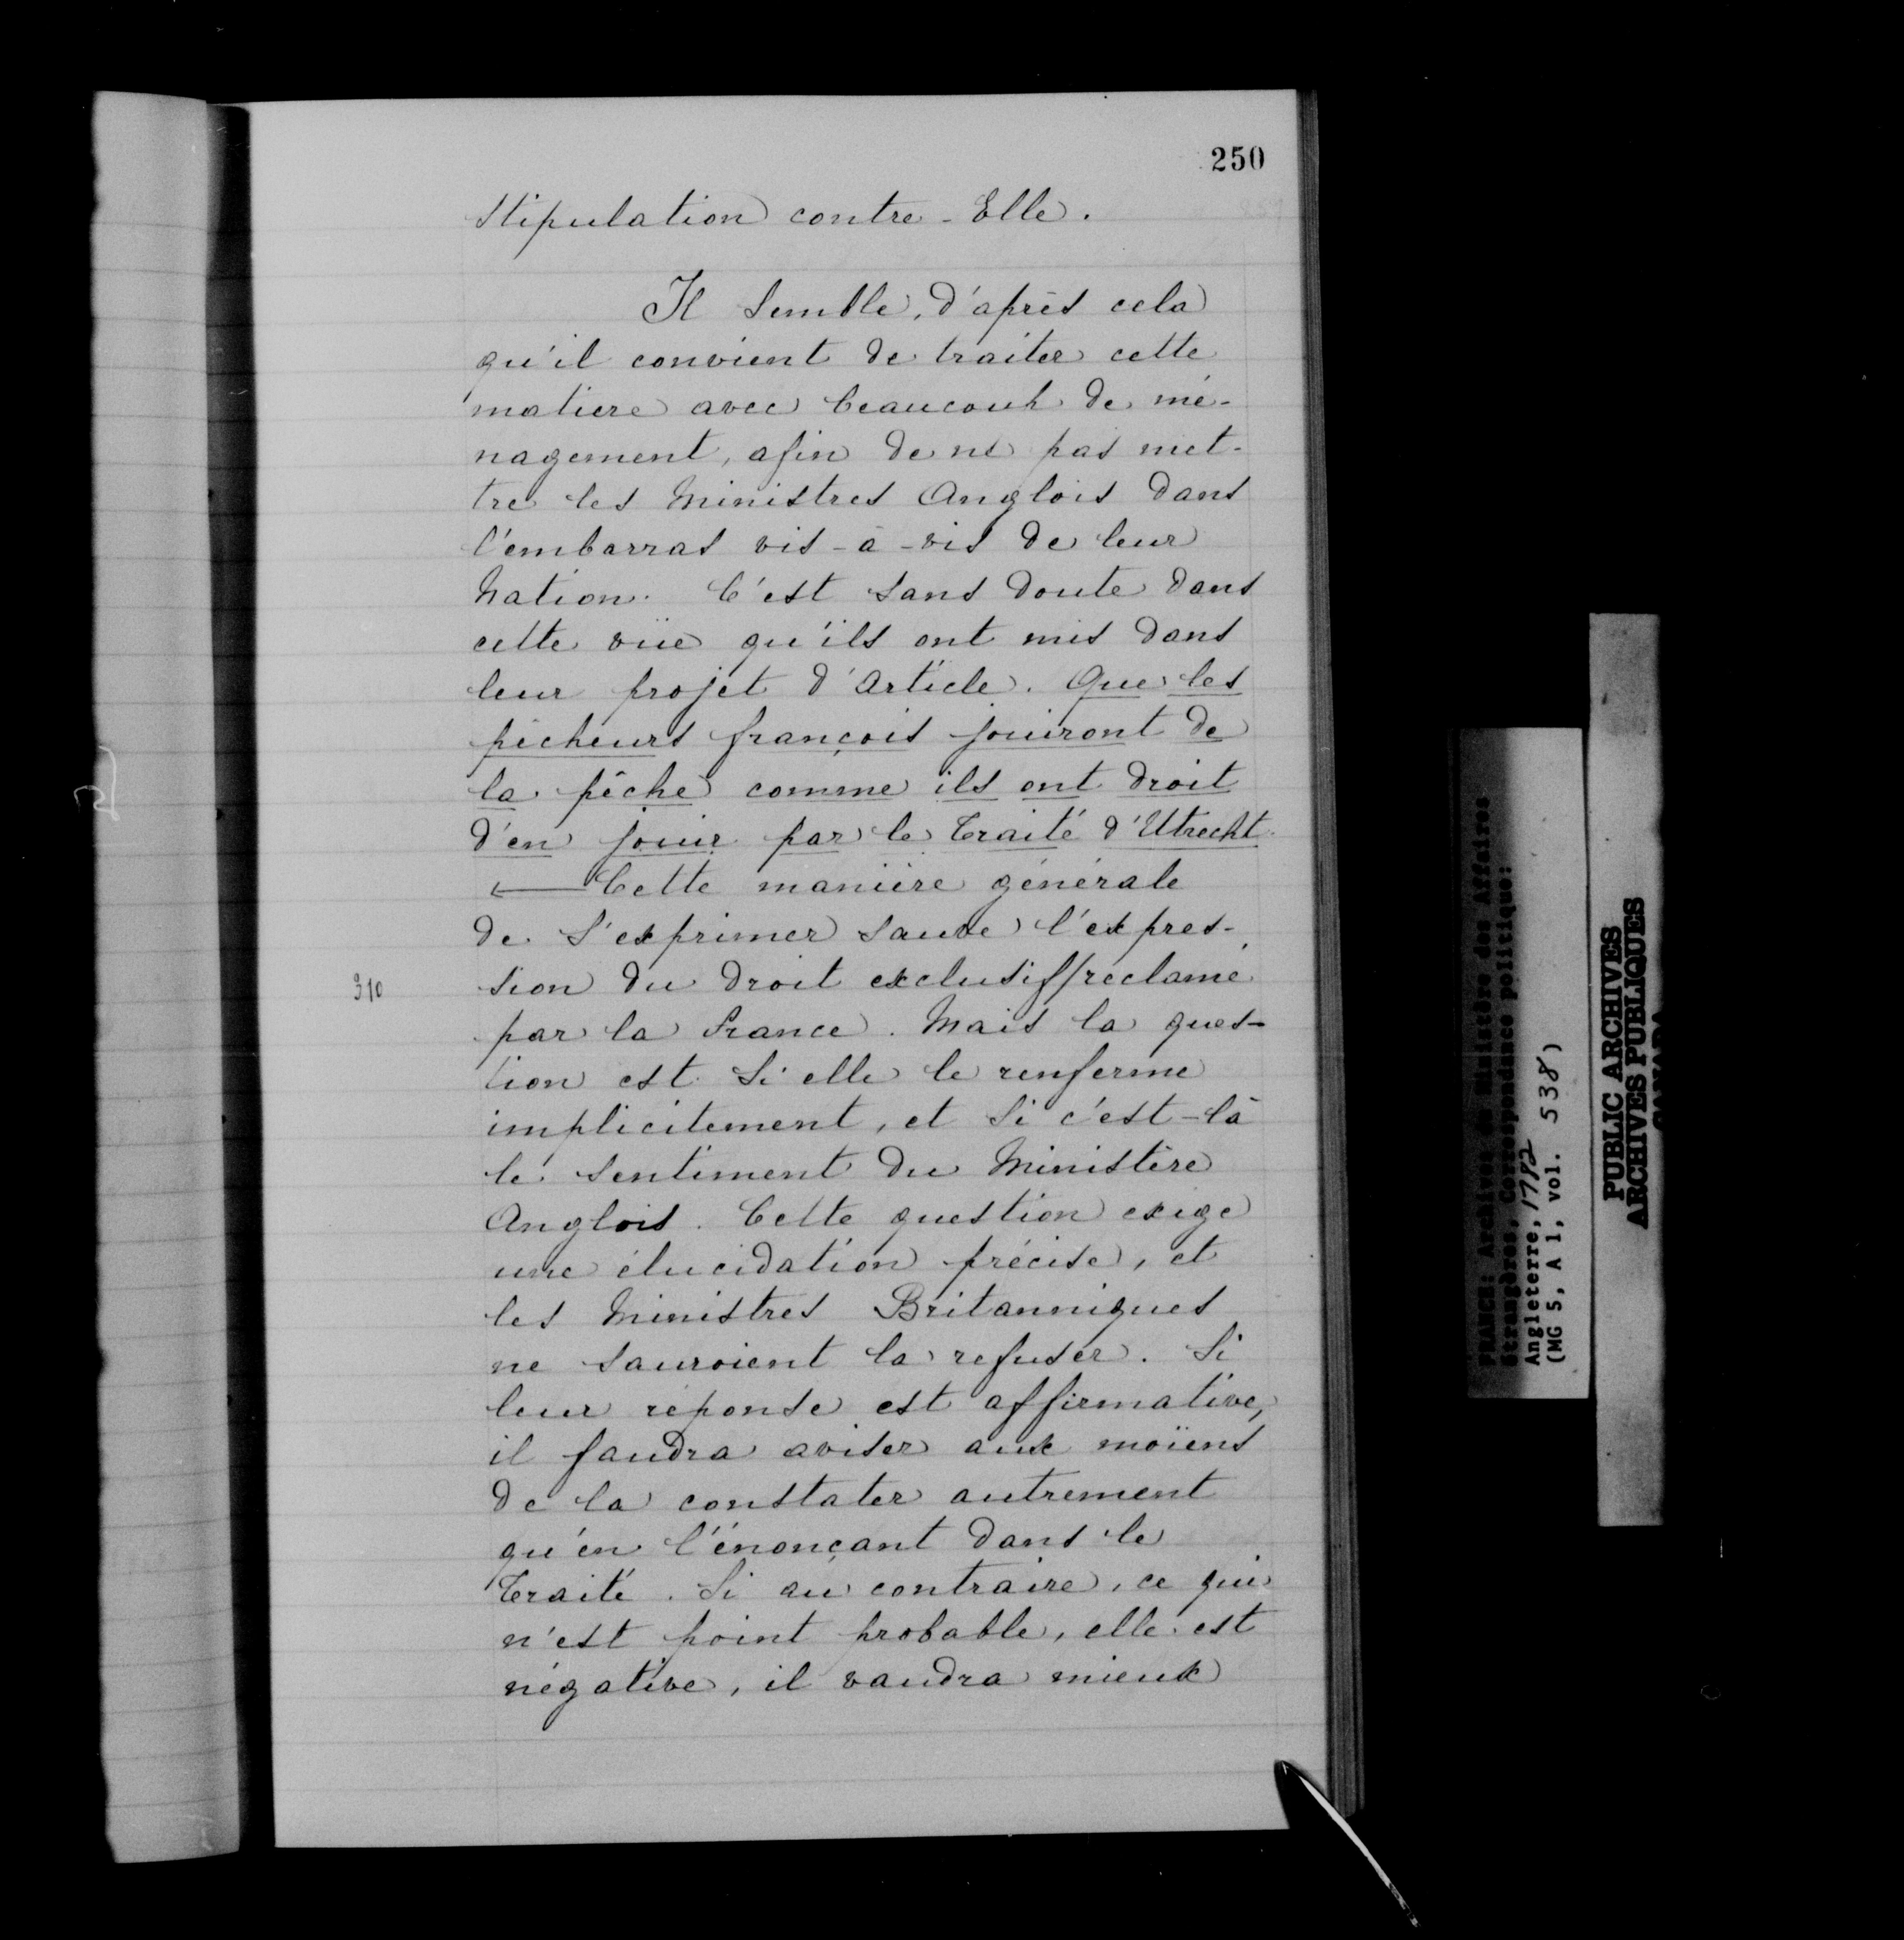 250
Stipulation contre-Elle.
Il Semble, d'après cela
qu'il convient de traiter cette
matiere avec beaucoup de mé-
nagement, afin de ne pas met-
tre les Ministres Anglois dans
l'embarras vis-à-vis de leur
Nation. C'est sans doute dans
cette vüe qu'ils ont mis dans
leur projet d'Article. Que les
pêcheurs françois jouiront de
la pêche comme ils ont droit
d'en jouir par le Traité d'Utrecht.
Cette manière générale
de S'exprimer sauve l'expres-
310 sion du droit exclusif/réclamé
par la France. Mais la ques-
tion est Si elle le renferme
implicitement, et Si c'est-là
le sentiment du Ministère
Anglois. Cette question exige
une élucidation précise, et
les Ministres Britanniques
ne sauroient la refuser. Si
leur réponse est affirmative,
il faudra aviser aux moïens
de la constater autrement
qu'en l'énonçant dans le
Traité. Si au contraire, ce qui
n'est point probable, elle est
négative, il vaudra mieux
FRANCE: Archives du Ministère des Affaires
Étrangères, Correspondance politique:
Angleterre, 1782
(MG 5, A 1, vol. 538)
PUBLIC ARCHIVES
ARCHIVES PUBLIQUES
CANADA